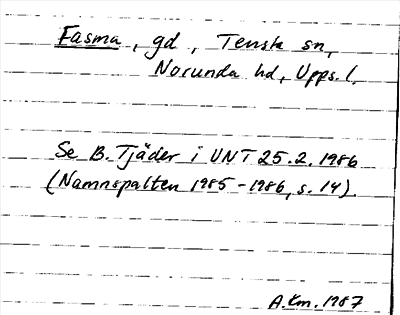 Fasma, gd, Tensta sn,
Norunda hd, Upps. l.
Se B. Tjäder i UNT 25.2.1986
(Namnspalten 1985-1986, s. 14).
A.Em. 1987